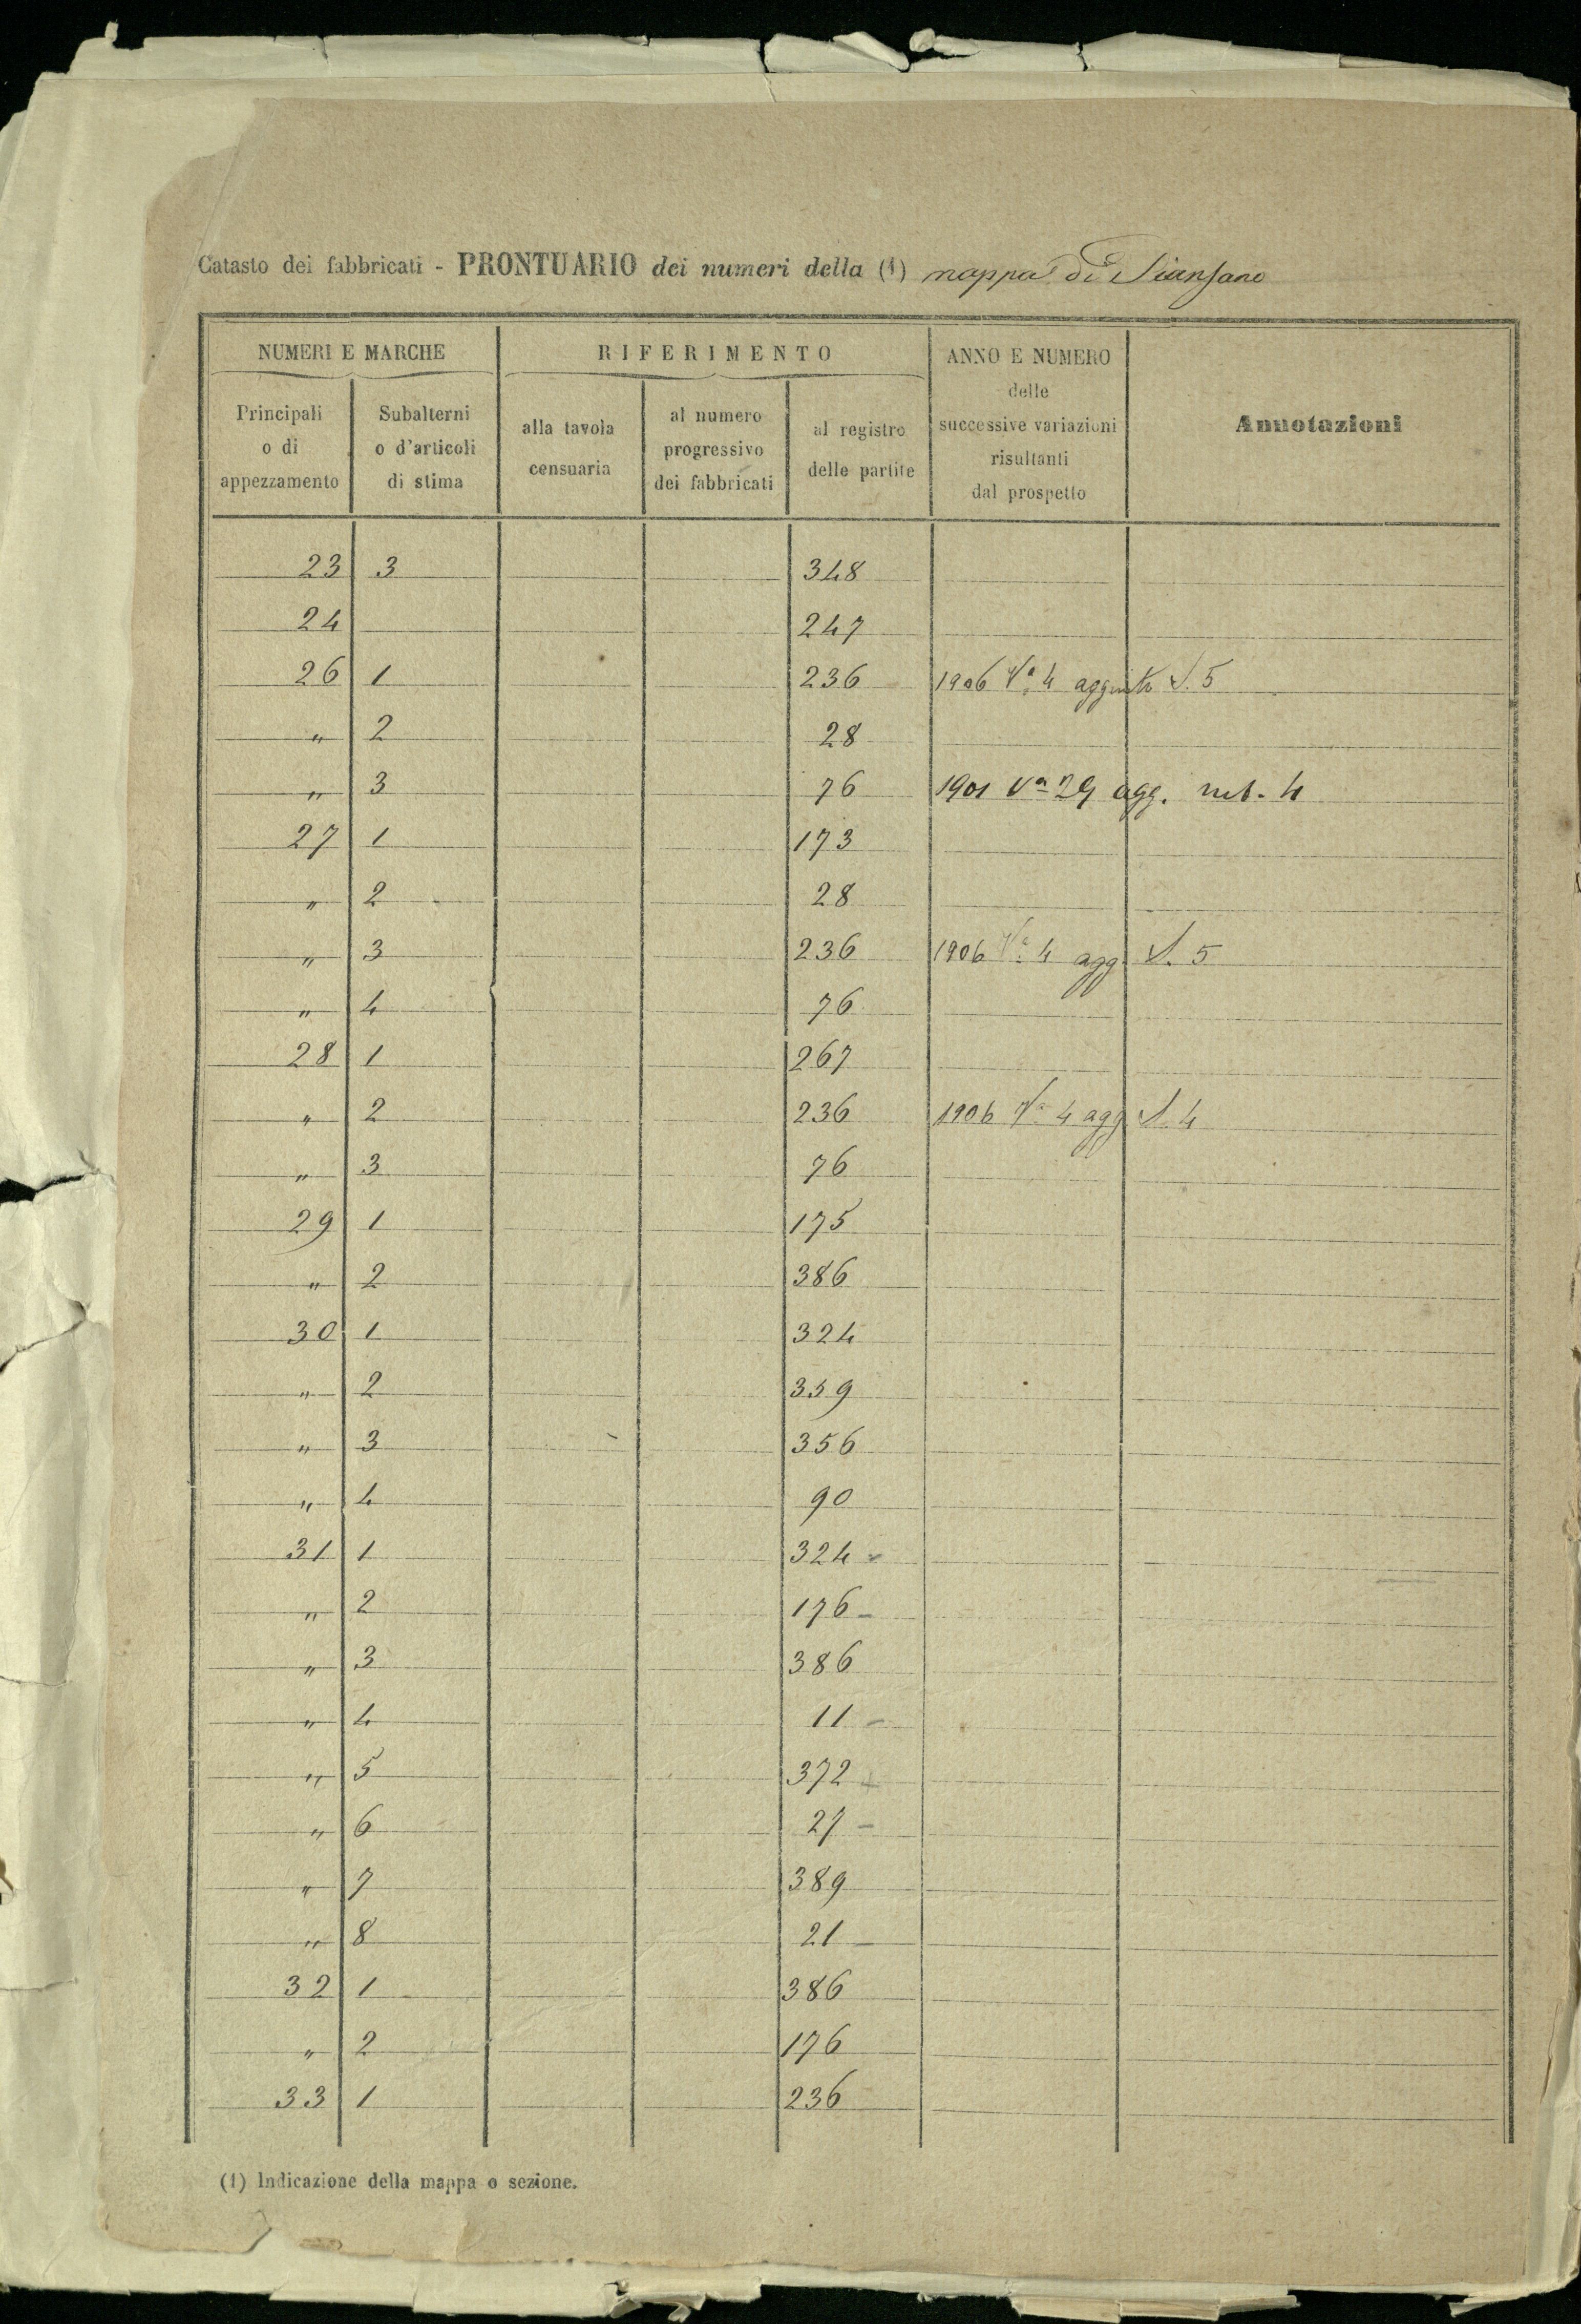 Catasto dei fabbricati - PRONTUARIO dei numeri della (1) mappa di Piansano
NUMERI E MARCHE
RIFERIMENTO
ANNO E NUMERO
delle
successive variazioni
risultanti
dal prospetto
Annotazioni
Principali
o di
appezzamento
Subalterni
o d'articoli
di stima
alla tavola
censuaria
al numero
progressivo
dei fabbricati
al registro
delle partite
23 3 348
24 247
26 1 236 1906 Va 4 aggiunto S. 5
" 2 28
" 3 76 1901 Va 29 agg. sub. 4
27 1 173
" 2 28
" 3 236 1906 Va 4 agg. S. 5
" 4 76
28 1 267
" 2 236 1906 Va 4 agg S. 4
" 3 76
29 1 175
" 2 386
30 1 324
" 2 359
" 3 356
" 4 90
31 1 324 -
" 2 176 -
" 3 386
" 4 11 -
" 5 372 -
" 6 27 -
" 7 389
" 8 21 -
32 1 386
" 2 176
33 1 236
(1) Indicazione della mappa o sezione.